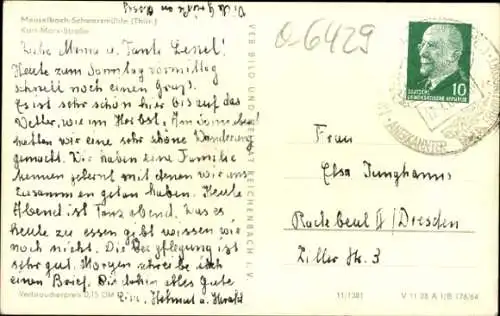 Viele Grüße an
Meuselbach-Schwarzmühle (Thür.)
Karl-Marx-Straße
Liebe Mama u. Tante Liesel!
Heute zum Sonntag vormittag
schnell noch einen Gruß.
Es ist sehr schön hier bis auf das
Wetter, wie im Herbst. Am Sonnabend
hatten wir eine sehr schöne Wanderung
gemacht. Wir haben eine Familie
kennen gelernt mit denen wir uns
zusammen getan haben. Heute
Abend ist Tanzabend. Was es
heute zu essen gibt wissen wir
noch nicht. Die Verpflegung ist
sehr gut. Morgen schreibe ich
einen Brief. Bis dahin alles Gute
Eure Helmut u.
Verbraucherpreis 0,15 DM
VEB BILD UND HEIMAT REICHENBACH I. V.
a-6429
DEUTSCHE
DEMOKRATISCHE REPUBLIK
10
ANERKANNTER
Frau
Elsa Junghanns
Radebeul II / Dresden
Ziller Str. 3
11/1381
V 11 28 A 1/B 176/64